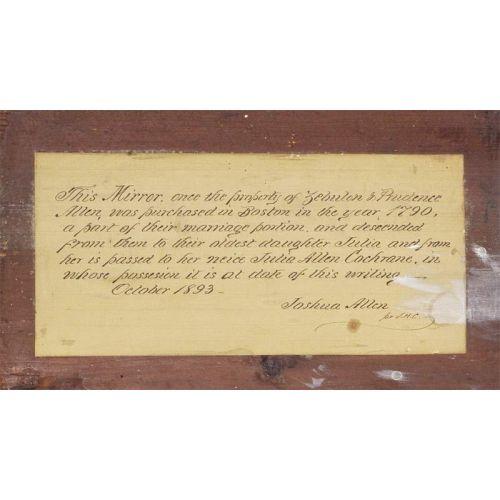 This Mirror, once the property of Zebulon & Prudence
Allen, was purchased in Boston in the year, 1790,
a part of their marriage portion, and descended
from them to their oldest daughter Julia and from
her is passed to her neice Julia Allen Cochrane, in
whose possesion it is at date of this writing—
October 1893—
Joshua Allen
for J.A.C.